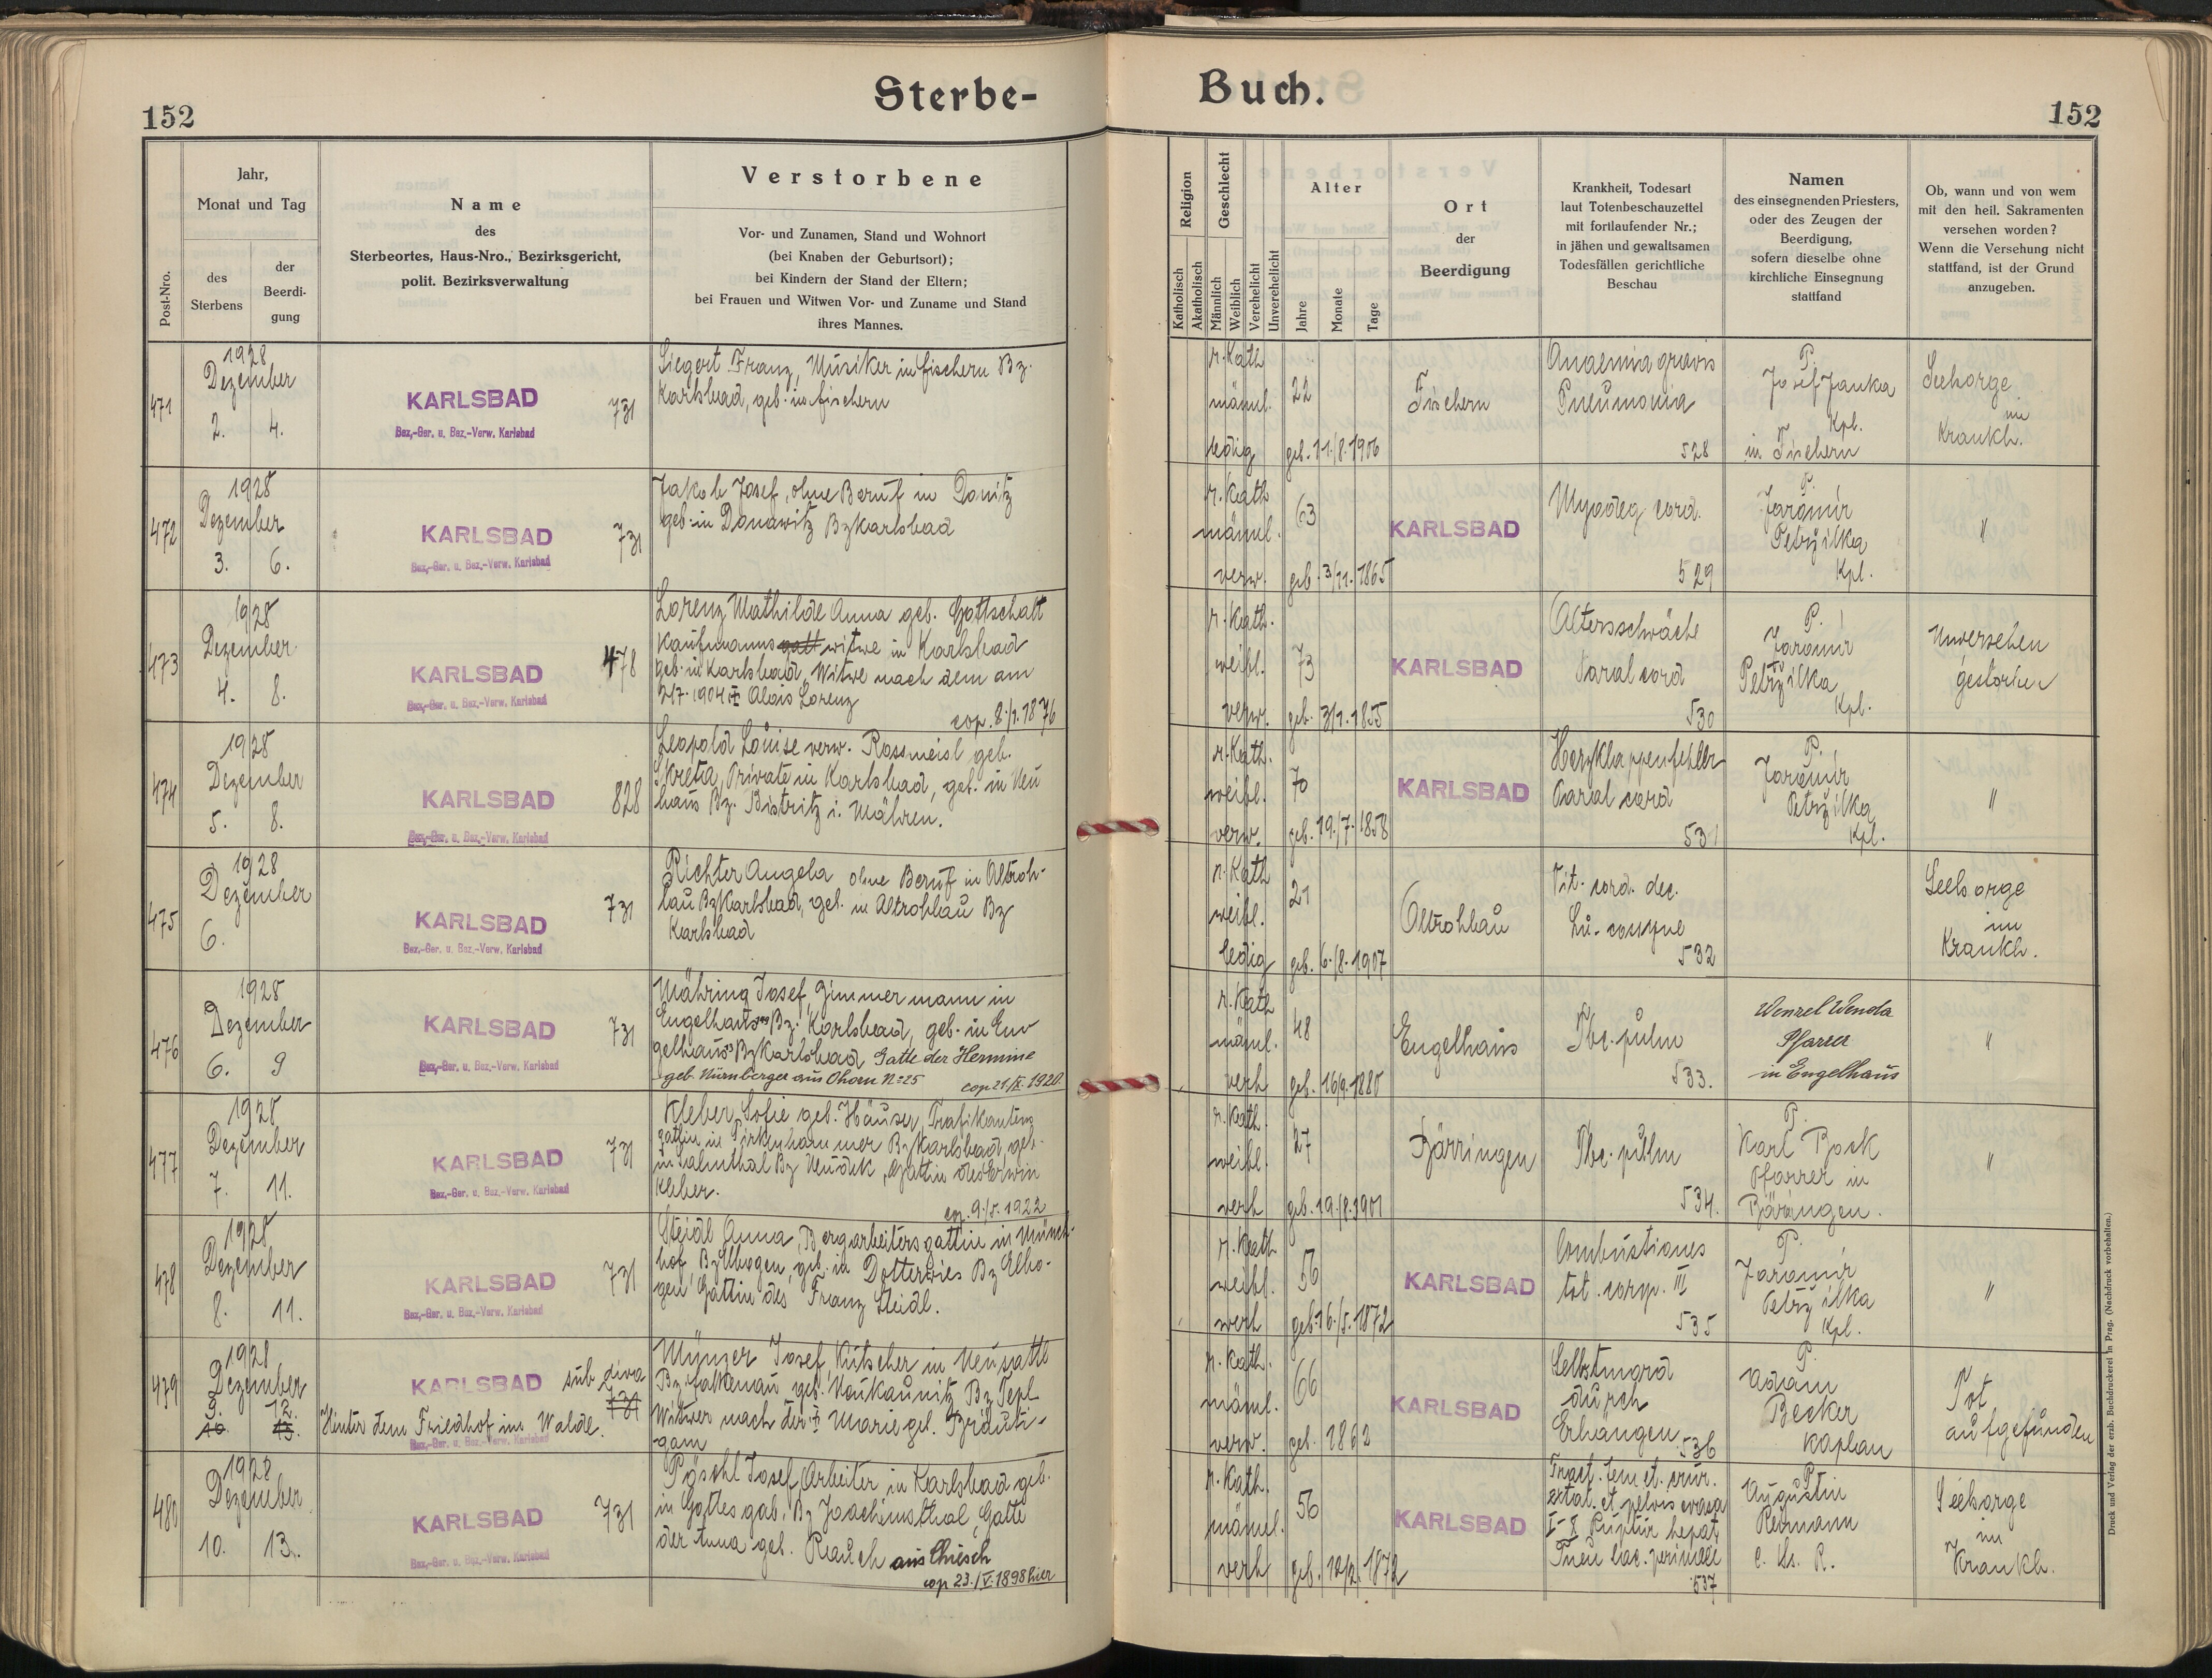 Sterbe-
Buch.
152
152
Post-Nro.
Jahr,
Monat und Tag
des
Sterbens
der
Beerdi-
gung
Name
des
Sterbeortes, Haus-Nro., Bezirksgericht,
polit. Bezirksverwaltung
Verstorbene
Vor- und Zunamen, Stand und Wohnort
(bei Knaben der Geburtsort);
bei Kindern der Stand der Eltern;
bei Frauen und Witwen Vor- und Zuname und Stand
ihres Mannes.
Religion
Katholisch
Akatholisch
Geschlecht
Männlich
Weiblich
Verehelicht
Unverehelicht
Alter
Jahre
Monate
Tage
Ort
der
Beerdigung
Krankheit, Todesart
laut Totenbeschauzettel
mit fortlaufender Nr.;
in jähen und gewaltsamen
Todesfällen gerichtliche
Beschau
Namen
des einsegnenden Priesters,
oder des Zeugen der
Beerdigung,
sofern dieselbe ohne
kirchliche Einsegnung
stattfand
Ob, wann und von wem
mit den heil. Sakramenten
versehen worden?
Wenn die Versehung nicht
stattfand, ist der Grund
anzugeben.
471
1928
Dezember
2. 4.
KARLSBAD
Bez.-Ger. u. Bez.-Verw. Karlsbad
731
Siegert Franz, Musiker in Fischern Bz.
Karlsbad, geb. in Fischern
r. Kath
männl.
ledig
22
geb. 11./8. 1906
Fischern
Anaemia gravis
Pneumonia
528
P.
Josef Janka
Kpl.
in Fischern
Seelsorge
im
Krankh.
472
1928
Dezember
3. 6.
KARLSBAD
Bez.-Ger. u. Bez.-Verw. Karlsbad
731
Jakob Josef, ohne Beruf in Donitz
geb. in Donawitz Bz Karlsbad
r. Kath
männl.
verw.
63
geb. 3/11. 1865
KARLSBAD
Myodeg cord.
529
P.
Jaromir
Petrzilka
Kpl.
"
473
1928
Dezember
4. 8.
KARLSBAD
Bez.-Ger. u. Bez.-Verw. Karlsbad
478
Lorenz Mathilde Anna geb. Gottschalk
Kaufmanns gatt witwe in Karlsbad
geb. in Karlsbad, Witwe nach dem am
1904 † Alois Lorenz
cop. 8./1. 1876
r. Kath.
weibl.
verw.
73
geb. 3/1. 1855
KARLSBAD
Altersschwäche
Paral cord
530
P.
Jaromir
Petrzilka
Kpl.
Unversehen
gestorben
474
1928
Dezember
5. 8.
KARLSBAD
Bez.-Ger. u. Bez.-Verw. Karlsbad
828
Leopold Louise verw. Rossmeisl geb.
Skreta, Private in Karlsbad, geb. in Neu
haus Bz. Bistritz i. Mähren.
r. Kath.
weibl.
verw.
70
geb. 19./7. 1858
KARLSBAD
Herzklappenfehler
Paral cord
531
P.
Jaromir
Petrzilka
Kpl.
"
475
1928
Dezember
6.
KARLSBAD
Bez.-Ger. u. Bez.-Verw. Karlsbad
731
Richter Angela ohne Beruf in Altroh-
lau Bz Karlsbad, geb. in Altrohlau Bz
Karlsbad
r. Kath
weibl.
ledig
21
geb. 6./8. 1907
Altrohlau
Vit. cord. dec.
532
Seelsorge
im
Krankh.
476
1928
Dezember
6. 9
KARLSBAD
Bez.-Ger. u. Bez.-Verw. Karlsbad
731
Mähring Josef, Zimmermann in
Engelhaus Bz. Karlsbad, geb. in En-
gelhaus Bz Karlsbad Gatte der Hermine
geb. Nürnberger aus Ohorn No 25 cop 21./IX. 1920.
r. Kath
männl.
verh
48
geb. 16/9. 1880
Engelhaus
Tbc. pulm
533.
Wenzel Wenda
Pfarrer
in Engelhaus
"
477
1928
Dezember
7. 11.
KARLSBAD
Bez.-Ger. u. Bez.-Verw. Karlsbad
731
Kleber Sofie geb. Häuser, Trafikantens
gattin in Pirkenhammer Bz Karlsbad, geb.
in Salmthal Bz Neudek, Gattin des Erwin
Kleber.
cop. 9./5. 1922
r. Kath.
weibl.
verh
27
geb. 19./8. 1901
Bärringen
Tbc. pulm
534.
P.
Karl Bock
Pfarrer in
Bäringen.
"
478
1928
Dezember
8. 11.
KARLSBAD
Bez.-Ger. u. Bez.-Verw. Karlsbad
731
Steidl Anna, Bergarbeitersgattin in Münch-
hof Bz Elbogen, geb. in Dotterwies Bz Elbo-
gen, Gattin des Franz Steidl.
r. Kath
weibl.
verh
56
geb. 16./5. 1872
KARLSBAD
Combustiones
tot. corp. III
535
P.
Jaromir
Petrzilka
Kpl.
"
479
1928
Dezember
9. 12.
10. 13.
KARLSBAD
sub divo
731
Hinter dem Friedhof im Walde.
Bez.-Ger. u. Bez.-Verw. Karlsbad
Münzer Josef, Kutscher in Neusattl
Bz. Falkenau geb. Neukaunitz Bz Tepl
Witwer nach der † Marie geb. Bräuti-
gam
r. Kath.
männl.
verw.
66
geb. 1862
KARLSBAD
Selbstmord
durch
Erhängen
536
P.
Adam
Becker
Kaplan
Tot
aufgefunden
480
1928
Dezember
10. 13.
KARLSBAD
Bez.-Ger. u. Bez.-Verw. Karlsbad
731
Pöschl Josef, Arbeiter in Karlsbad geb.
in Gottesgab, Bz Joachimsthal, Gatte
der Anna geb. Rauch aus Chiesch
cop 23./V. 1898 hier
r. Kath.
männl.
verh
56
geb. 1872
KARLSBAD
Fract. fem et. crur.
et pelvis
Ruptur hepat
537
P.
Augustin
Reimann
Seelsorge
im
Krankh.
Druck und Verlag der erzb. Buchdruckerei in Prag. (Nachdruck vorbehalten.)